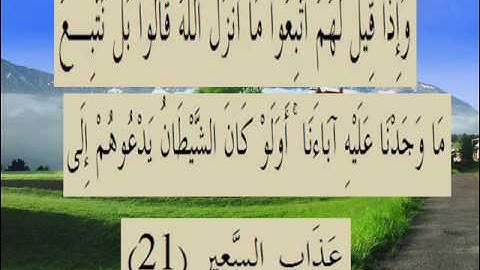 وَإِذَا قِيلَ لَهُمُ اتَّبِعُوا مَا أَنْزَلَ اللَّهُ قَالُوا بَلْ نَتَّبِعُ
مَا وَجَدْنَا عَلَيْهِ آبَاءَنَا ۚ أَوَلَوْ كَانَ الشَّيْطَانُ يَدْعُوهُمْ إِلَى
عَذَابِ السَّعِيرِ (21)